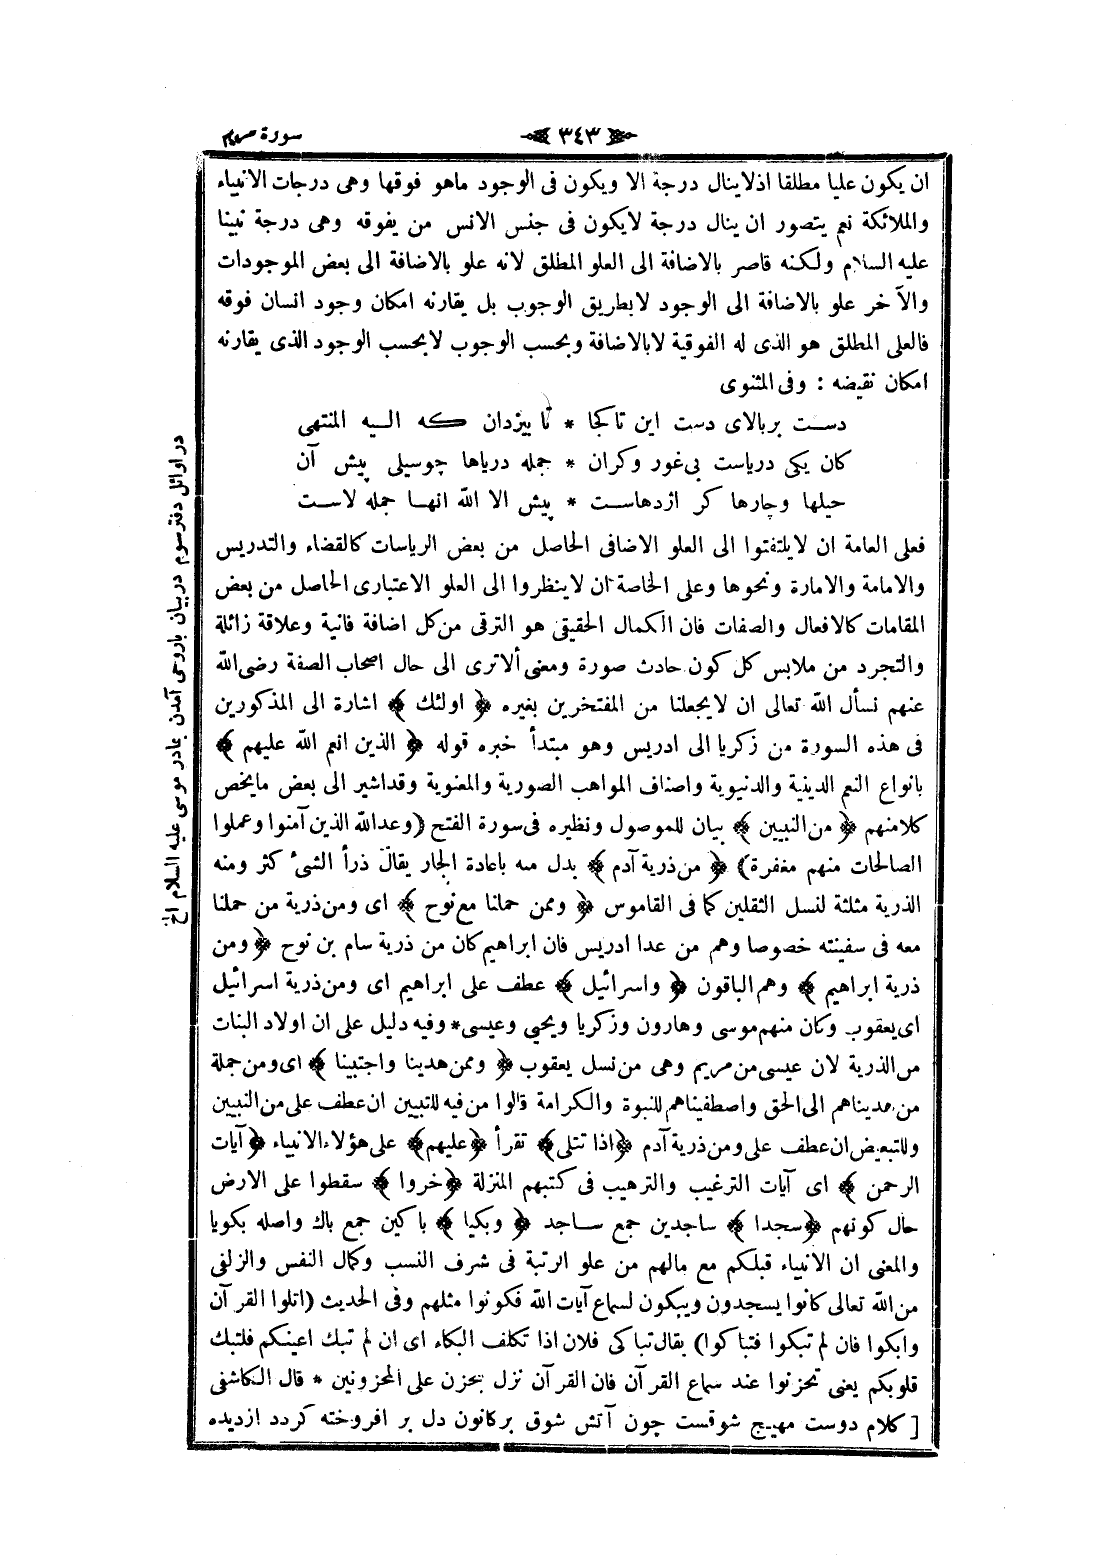 سورة مريم
٣٤٣
ان يكون عليا مطلقا اذلاينال درجة الا ويكون فى الوجود ماهو فوقها وهى درجات الانبياء
والملائكة نعم يتصور ان ينال درجة لايكون فى جنس الانس من يفوقه وهى درجة نبينا
عليه السلام ولكنه قاصر بالاضافة الى العلو المطلق لانه علو بالاضافة الى بعض الموجودات
والآخر علو بالاضافة الى الوجود لابطريق الوجوب بل يقارنه امكان وجود انسان فوقه
فالعلى المطلق هو الذى له الفوقية لابالاضافة وبحسب الوجوب لابحسب الوجود الذى يقارنه
امكان نقيضه : وفى المثنوى
دست بربالاى دست اين تاكجا * تا بيزدان كه اليه المنتهى
كان يكى درياست بى غور وكران * جمله درياها چوسيلى پيش آن
حيلها وچارها كر اژدهاست * پيش الا الله انها جمله لاست
فعلى العامة ان لايلتفتوا الى العلو الاضافى الحاصل من بعض الرياسات كالقضاء والتدريس
والامامة والامارة ونحوها وعلى الخاصة ان لاينظروا الى العلو الاعتبارى الحاصل من بعض
المقامات كالافعال والصفات فان الكمال الحقيقى هو الترقى من كل اضافة فانية وعلاقة زائلة
والتجرد من ملابس كل كون حادث صورة ومعنى ألاترى الى حال اصحاب الصفة رضى الله
عنهم نسأل الله تعالى ان لايجعلنا من المفتخرين بغيره ﴿ اولئك ﴾ اشارة الى المذكورين
فى هذه السورة من زكريا الى ادريس وهو مبتدأ خبره قوله ﴿ الذين انعم الله عليهم ﴾
بانواع النعم الدينية والدنيوية واصناف المواهب الصورية والمعنوية وقداشير الى بعض مايخص
كلامنهم ﴿ من النبيين ﴾ بيان للموصول ونظيره فى سورة الفتح (وعدالله الذين آمنوا وعملوا
الصالحات منهم مغفرة) ﴿ من ذرية آدم ﴾ بدل منه باعادة الجار يقال ذرأ الشئ كثر ومنه
الذرية مثلثة لنسل الثقلين كما فى القاموس ﴿ وممن حملنا مع نوح ﴾ اى ومن ذرية من حملنا
معه فى سفينته خصوصا وهم من عدا ادريس فان ابراهيم كان من ذرية سام بن نوح ﴿ ومن
ذرية ابراهيم ﴾ وهم الباقون ﴿ واسرائيل ﴾ عطف على ابراهيم اى ومن ذرية اسرائيل
اى يعقوب وكان منهم موسى وهارون وزكريا ويحيى وعيسى * وفيه دليل على ان اولاد البنات
من الذرية لان عيسى من مريم وهى من نسل يعقوب ﴿ وممن هدينا واجتبينا ﴾ اى ومن جملة
من هديناهم الى الحق واصطفيناهم للنبوة والكرامة قالوا من فيه للتبيين ان عطف على من النبيين
وللتبعيض ان عطف على ومن ذرية آدم ﴿ اذا تتلى ﴾ تقرأ ﴿ عليهم ﴾ على هؤلاء الانبياء ﴿ آيات
الرحمن ﴾ اى آيات الترغيب والترهيب فى كتبهم المنزلة ﴿ خروا ﴾ سقطوا على الارض
حال كونهم ﴿ سجدا ﴾ ساجدين جمع ساجد ﴿ وبكيا ﴾ باكين جمع باك واصله بكويا
والمعنى ان الانبياء قبلكم مع مالهم من علو الرتبة فى شرف النسب وكمال النفس والزلفى
من الله تعالى كانوا يسجدون ويبكون لسماع آيات الله فكونوا مثلهم وفى الحديث (اتلوا القرآن
وابكوا فان لم تبكوا فتباكوا) يقال تباكى فلان اذا تكلف البكاء اى ان لم تبك اعينكم فلتبك
قلوبكم يعنى تحزنوا عند سماع القرآن فان القرآن نزل بحزن على المحزونين * قال الكاشفى
[ كلام دوست مهيج شوقست چون آتش شوق بركانون دل بر افروخته كردد ازديده
در اوائل دفتر سوم در بيان باز وحى آمدن بمادر موسى عليه السلام الخ